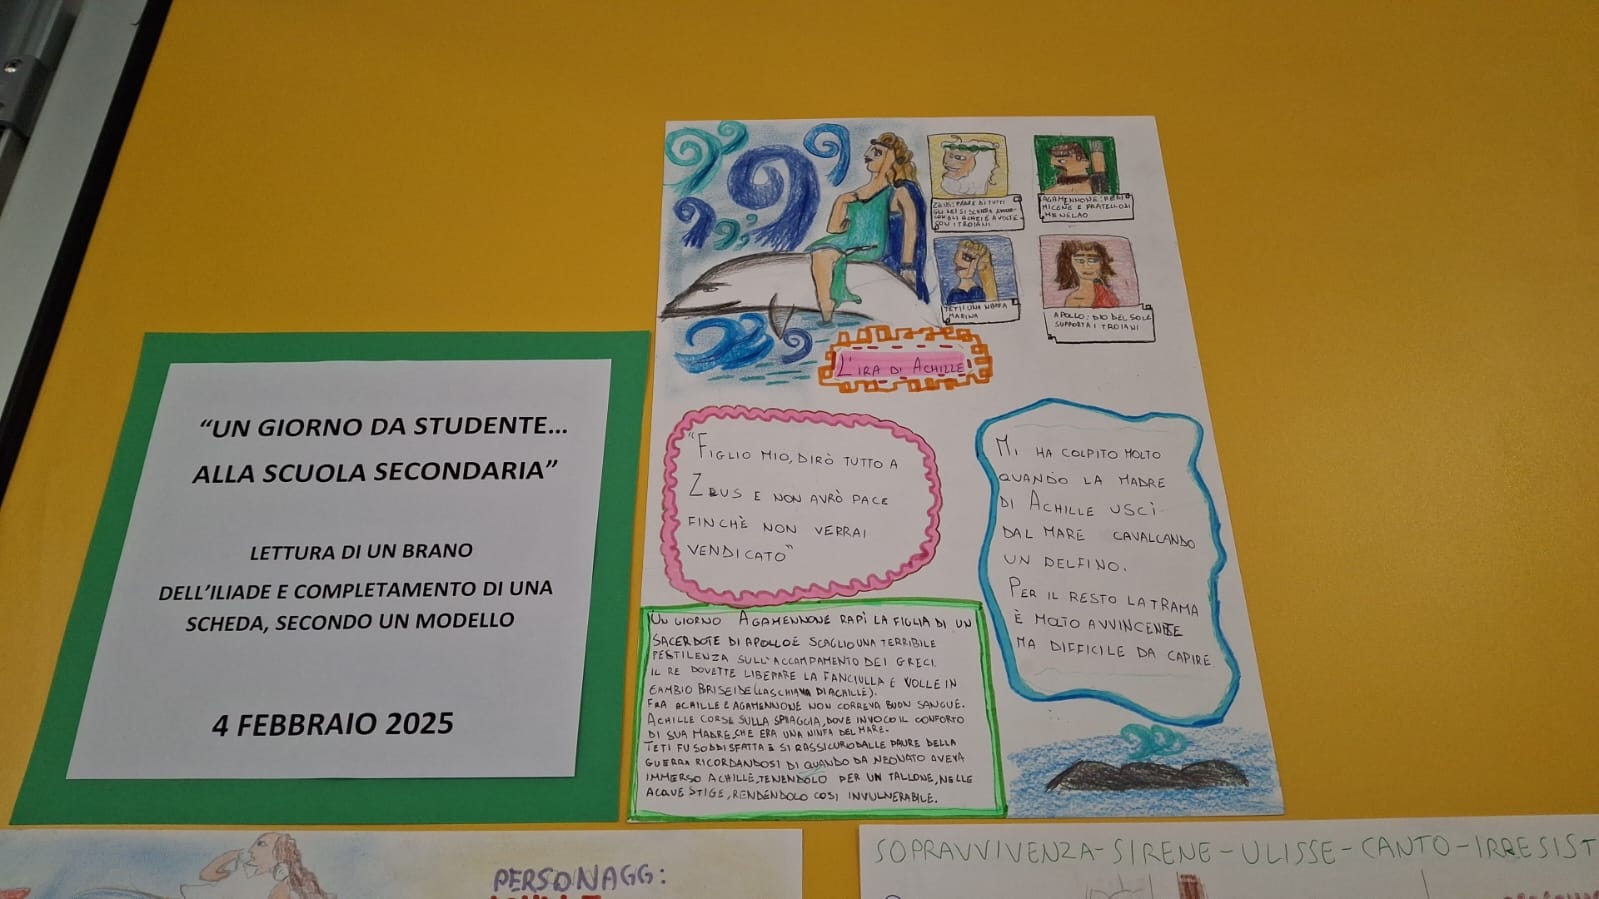 “UN GIORNO DA STUDENTE...
ALLA SCUOLA SECONDARIA”
LETTURA DI UN BRANO
DELL’ILIADE E COMPLETAMENTO DI UNA
SCHEDA, SECONDO UN MODELLO
4 FEBBRAIO 2025
ZEUS: PADRE DI TUTTI
GLI DEI SI SCHIERA
GLI ACHEI E A VOLTE
CON I TROIANI
AGAMENNONE: RE DI
MICENE E FRATELLO DI
MENELAO
TETI: UNA NINFA
MARINA
APOLLO: DIO DEL SOLE
SUPPORTA I TROIANI
L'IRA DI ACHILLE
"FIGLIO MIO, DIRÒ TUTTO A
ZEUS E NON AVRÒ PACE
FINCHÈ NON VERRAI
VENDICATO"
MI HA COLPITO MOLTO
QUANDO LA MADRE
DI ACHILLE USCÌ
DAL MARE CAVALCANDO
UN DELFINO.
PER IL RESTO LA TRAMA
È MOLTO AVVINCENTE
MA DIFFICILE DA CAPIRE
UN GIORNO AGAMENNONE RAPÌ LA FIGLIA DI UN
SACERDOTE DI APOLLO E SCAGLIO UNA TERRIBILE
PESTILENZA SULL'ACCAMPAMENTO DEI GRECI.
IL RE DOVETTE LIBERARE LA FANCIULLA E VOLLE IN
CAMBIO BRISEIDE (LA SCHIAVA DI ACHILLE).
FRA ACHILLE E AGAMENNONE NON CORREVA BUON SANGUE.
ACHILLE CORSE SULLA SPIAGGIA, DOVE INVOCO IL CONFORTO
DI SUA MADRE, CHE ERA UNA NINFA DEL MARE.
TETI FU SODDISFATTA E SI RASSICURO DALLE PAURE DELLA
GUERRA RICORDANDOSI DI QUANDO DA NEONATO AVEVA
IMMERSO ACHILLE, TENENDOLO PER UN TALLONE, NELLE
ACQUE STIGE, RENDENDOLO COSI INVULNERABILE.
PERSONAGG:
SOPRAVVIVENZA-SIRENE-ULISSE-CANTO-IRRESIST